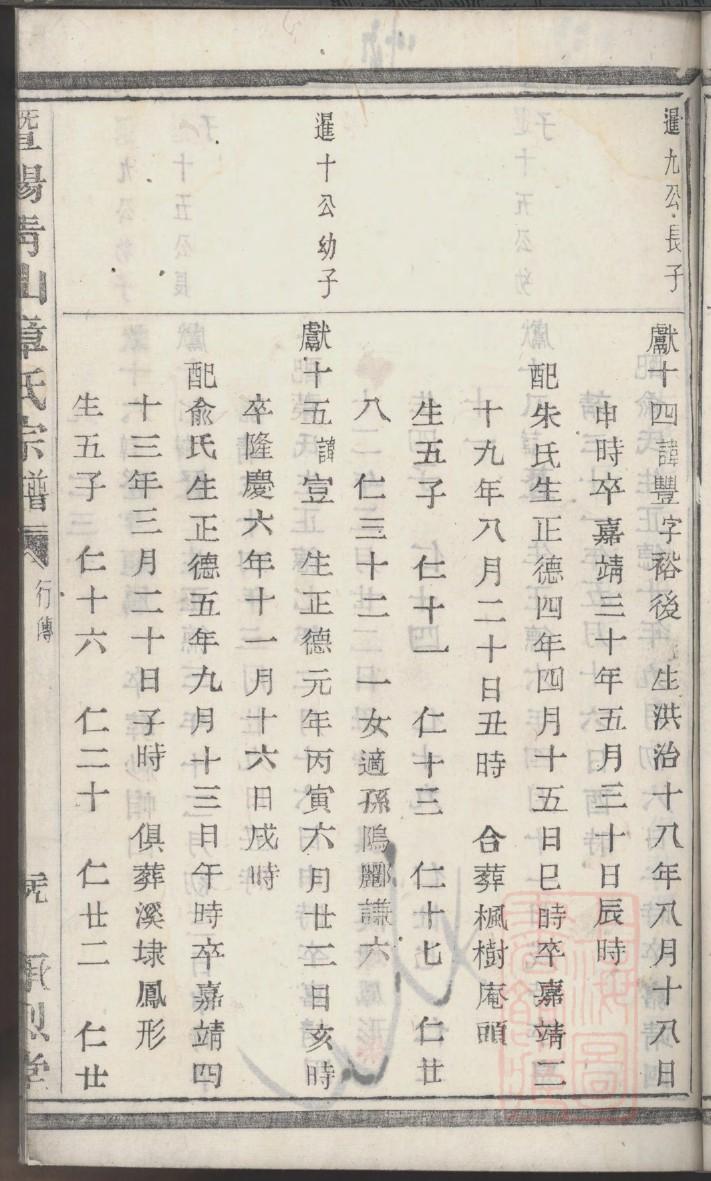 暹九公長子
獻十四諱豐字裕後　生洪治十八年八月十八日
申時卒嘉靖三十年五月三十日辰時
配朱氏生正德四年四月十五日巳時卒嘉靖三
十九年八月二十日丑時　合葬楓樹庵頭
生五子　仁十一　仁十三　仁十七　仁廿
八　仁三十二　一女適孫鄔酈謙六
暹十公幼子
獻十五諱壹　生正德元年丙寅六月廿二日亥時
卒隆慶六年十一月十六日戌時
配俞氏生正德五年九月十三日午時卒嘉靖四
十三年三月二十日子時　俱葬溪埭鳳形
生五子　仁十六　仁二十　仁廿二　仁廿
暨陽青山章氏宗譜　行傳